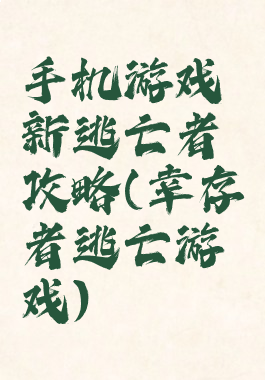 手机游戏
新逃亡者
攻略(幸存
者逃亡游
戏)